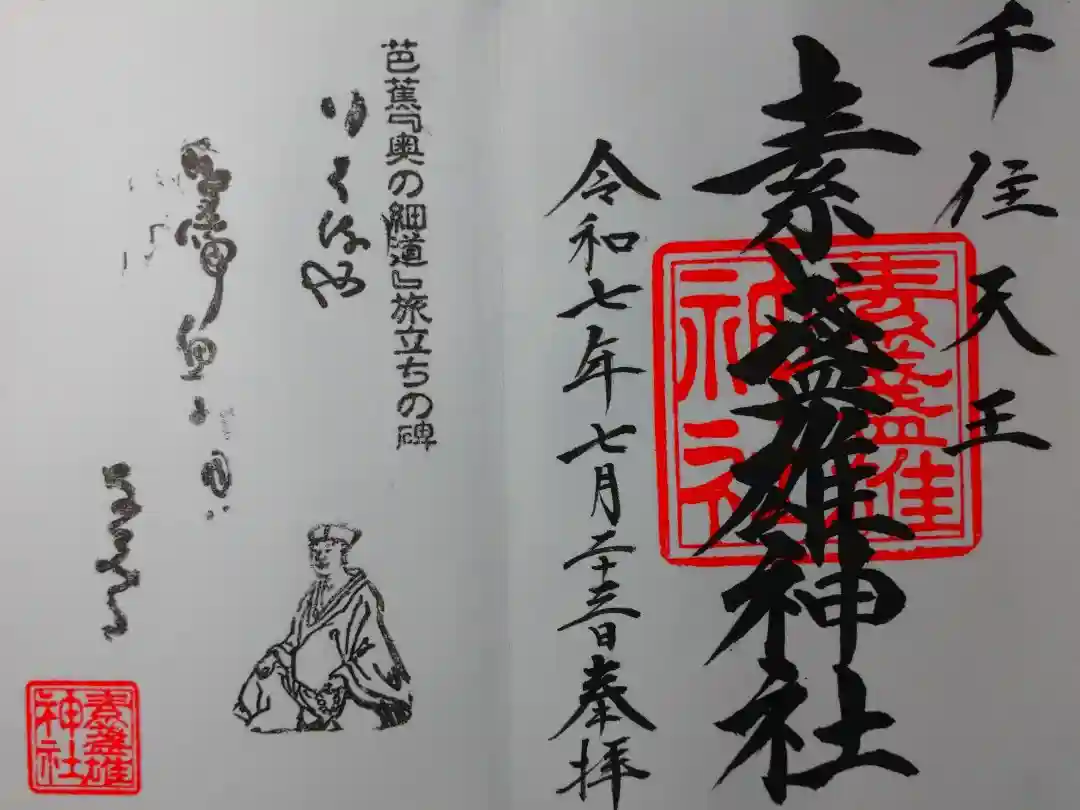 千住天王
素盞雄神社
素盞雄神社
令和七年七月二十三日奉拝
芭蕉『奥の細道』旅立ちの碑
素盞雄神社